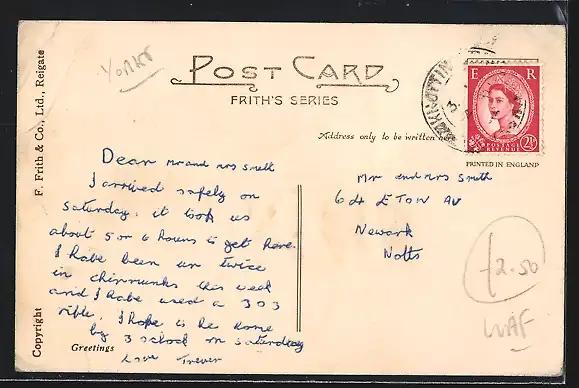 Yorks
POST CARD
FRITH'S SERIES
Address only to be written here
E R
POSTAGE
REVENUE
2½
PRINTED IN ENGLAND
F. Frith & Co., Ltd., Reigate
Copyright
Dear mr and mrs Smith
I arrived safely on
Saturday. it took us
about 5 or 6 hours to get here.
I habe been up twice
in chipmunks this week
and I habe used a 303
rifle. I hope to be home
by 3 oclock on Saturday
Greetings
Love Trever
Mr and mrs Smith
64 ETON AV
Newark
Notts
£2.50
WAF